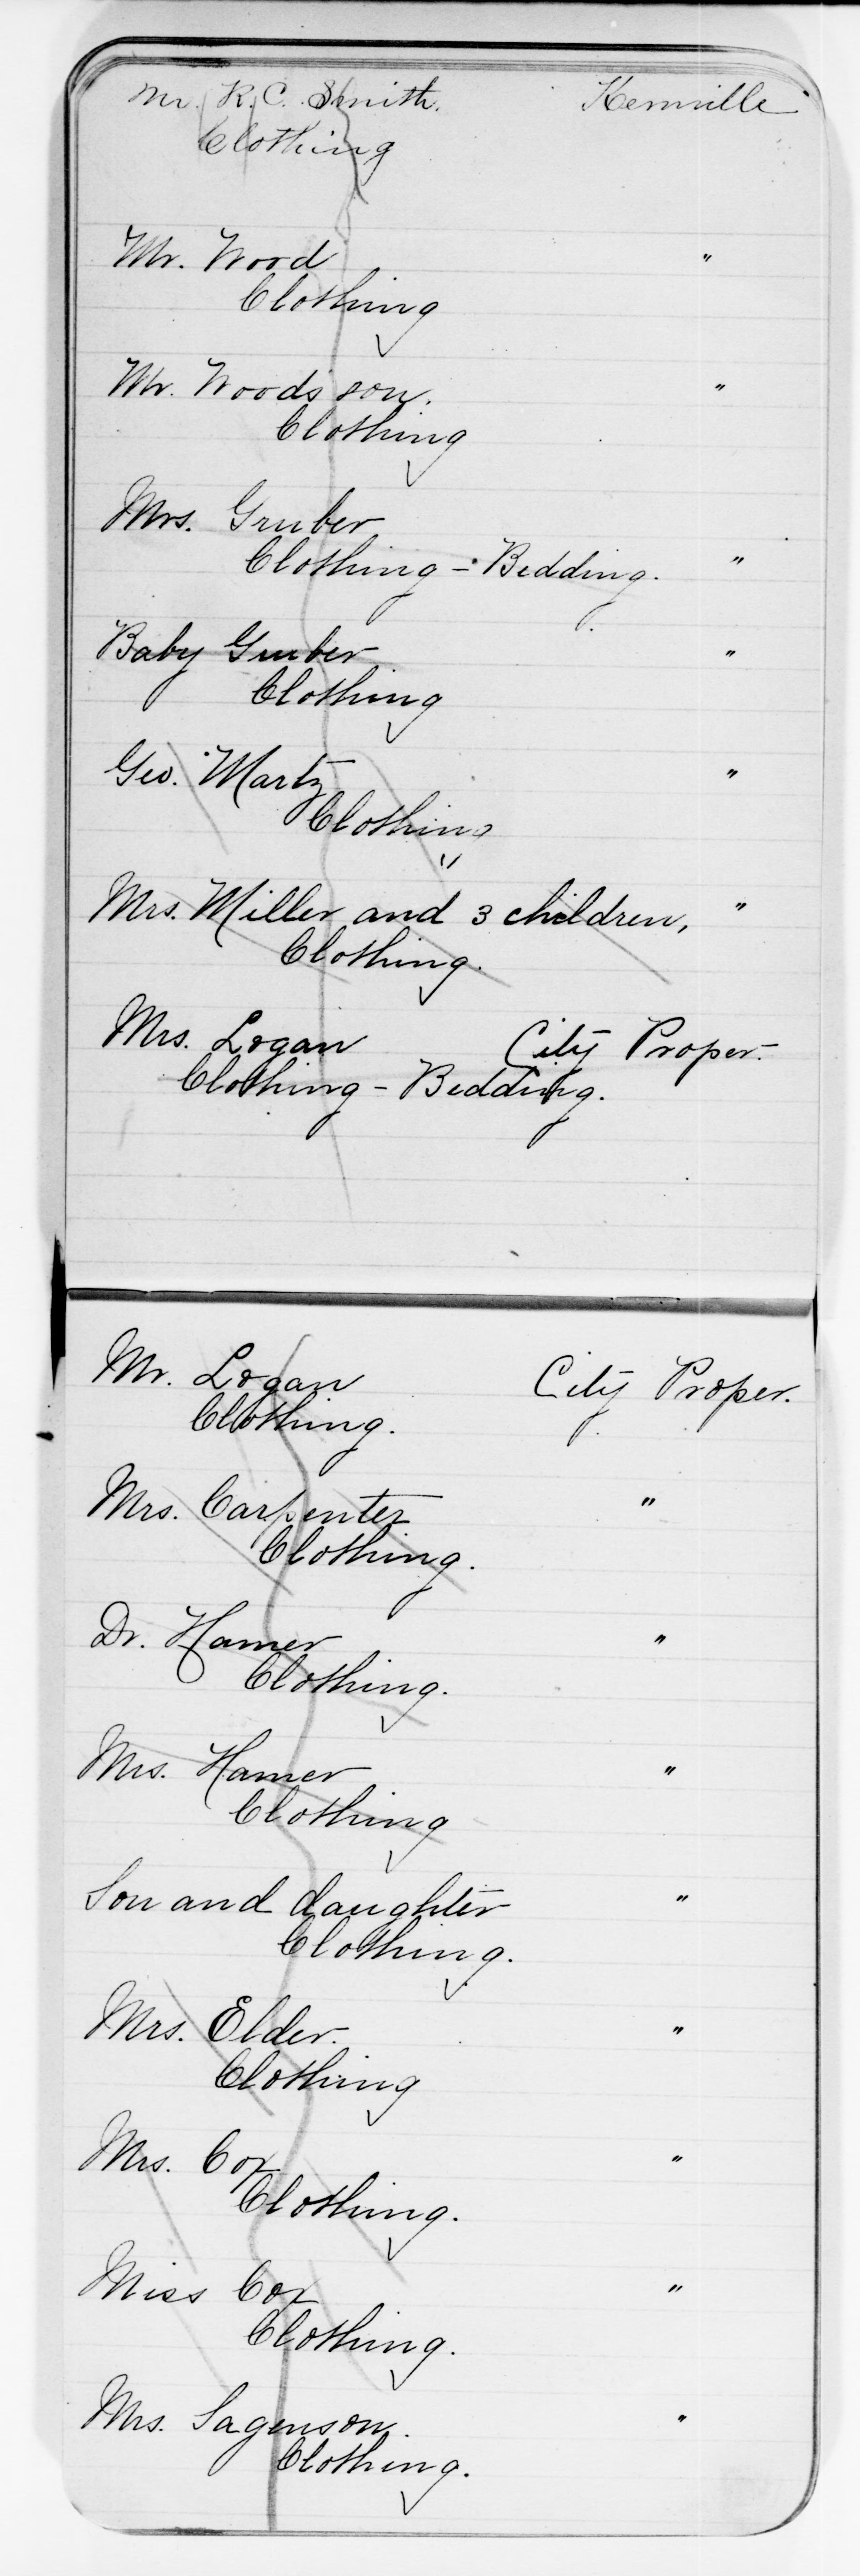 Mr. R. C. Smith. Kernville
Clothing
Mr. Wood "
Clothing
Mr. Woods son. "
Clothing
Mrs. Gruber
Clothing - Bedding. "
Baby Gruber "
Clothing
Geo. Martz "
Clothing
Mrs. Miller and 3 children, "
Clothing.
Mrs. Logan City Proper.
Clothing - Bedding.
Mr. Logan City Proper.
Clothing.
Mrs. Carpenter "
Clothing.
Dr. Hamer "
Clothing.
Mrs. Hamer "
Clothing
Son and daughter "
Clothing.
Mrs. Elder. "
Clothing
Mrs. Cox "
Clothing.
Miss Cox "
Clothing.
Mrs. Sagenson. "
Clothing.